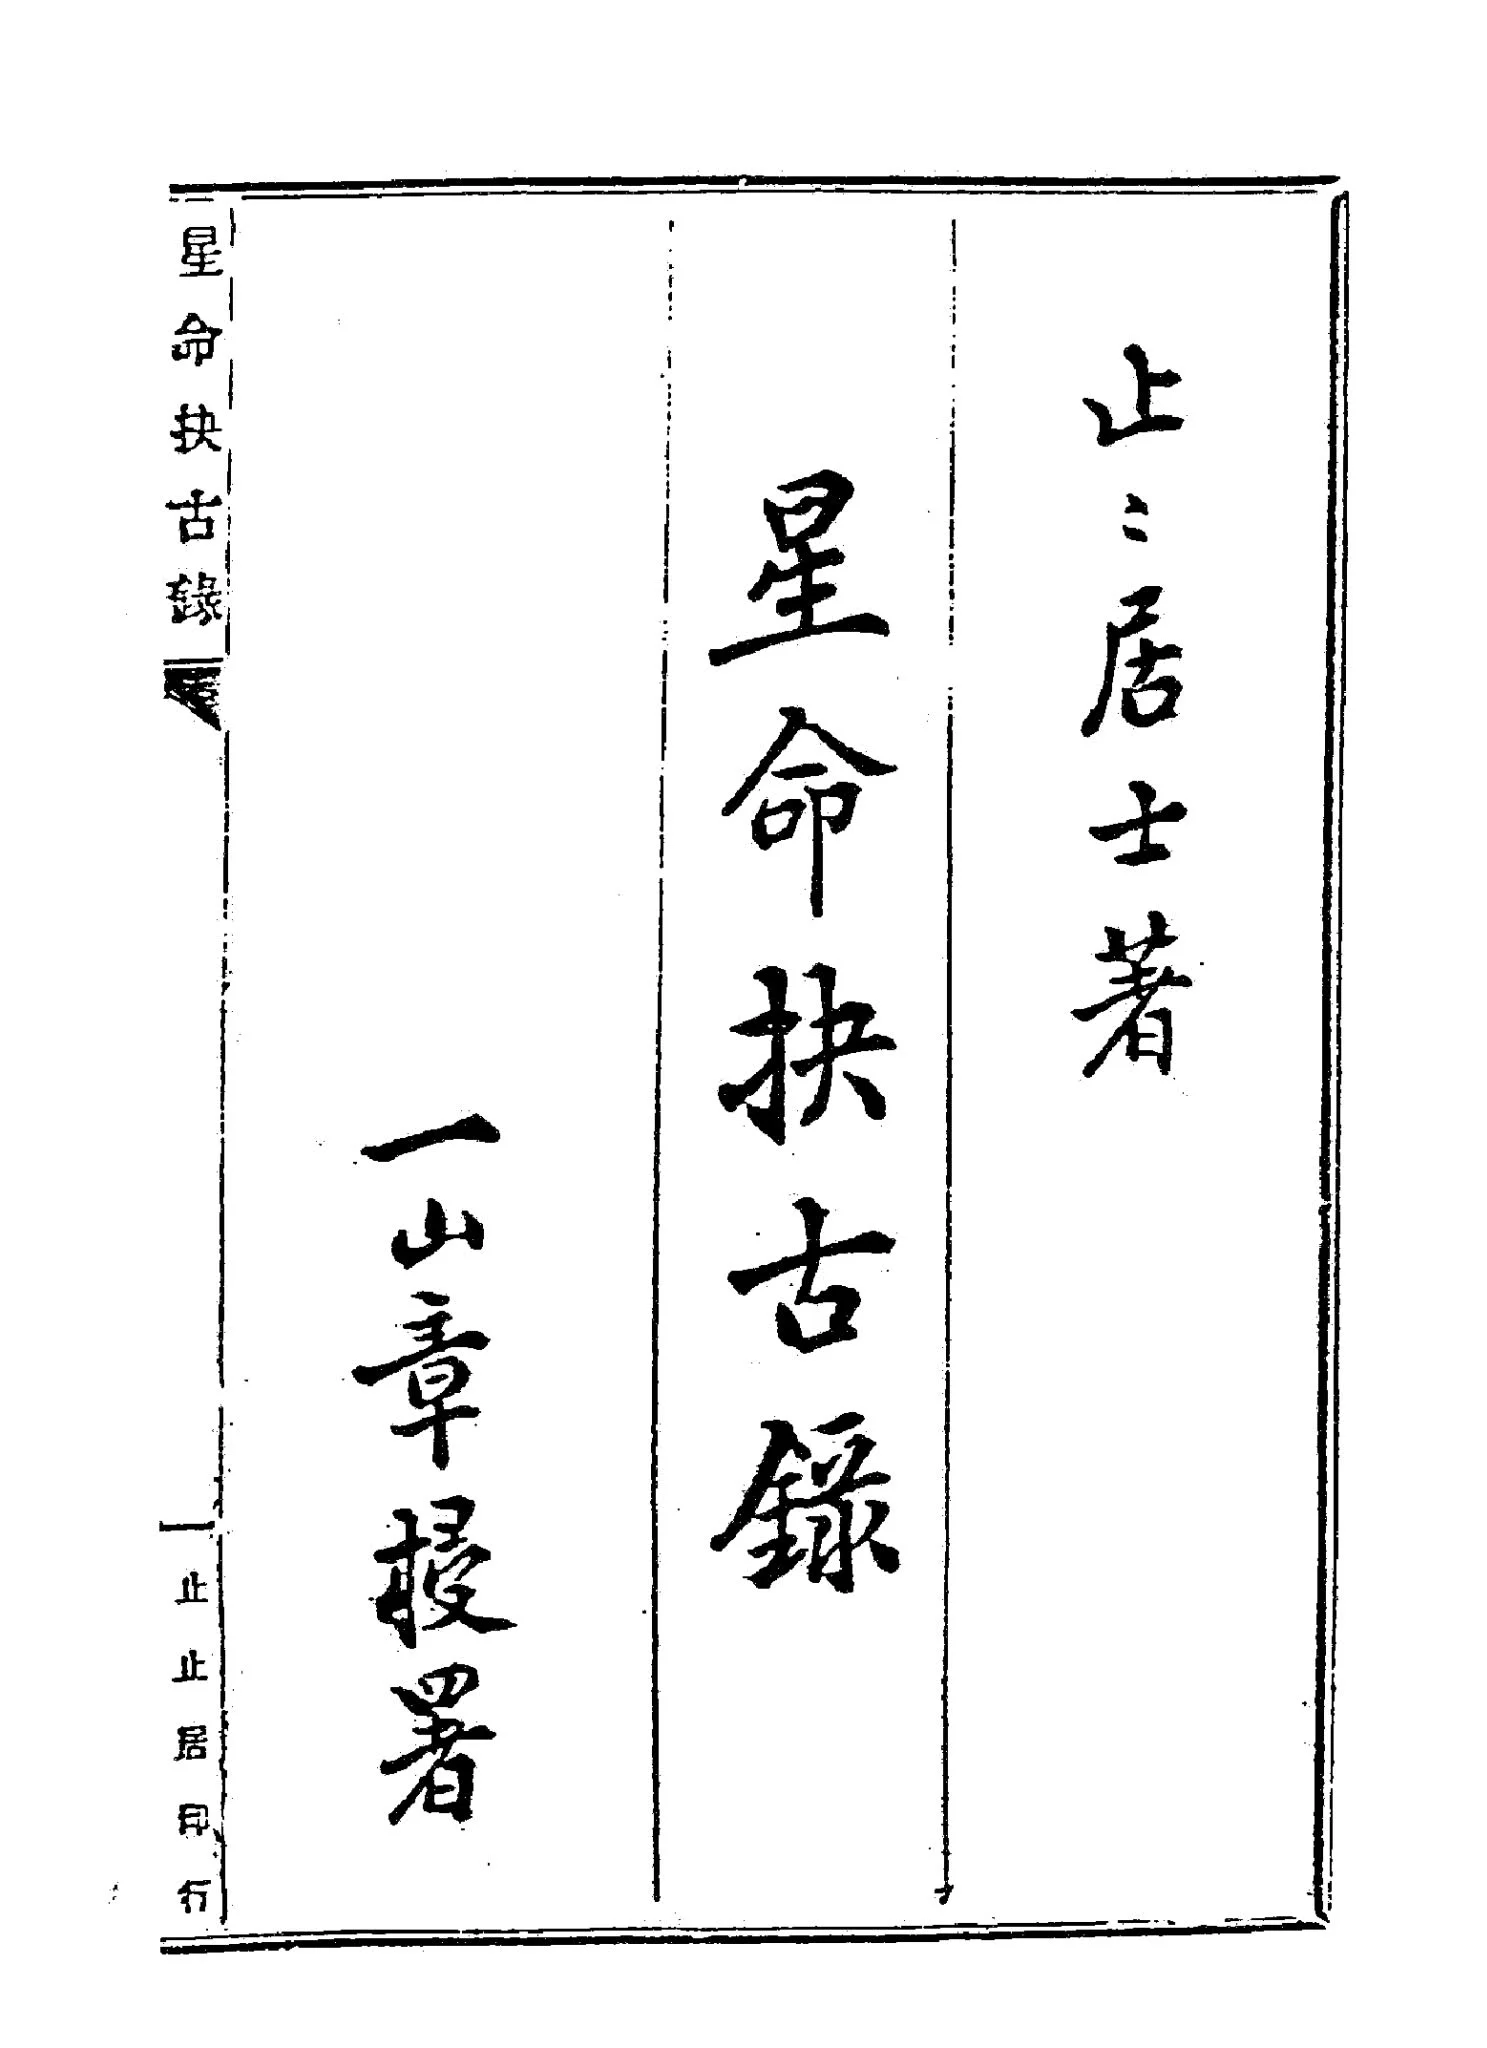 止〻居士著
星命抉古錄
一山章梫署
星命抉古錄
止止居印行